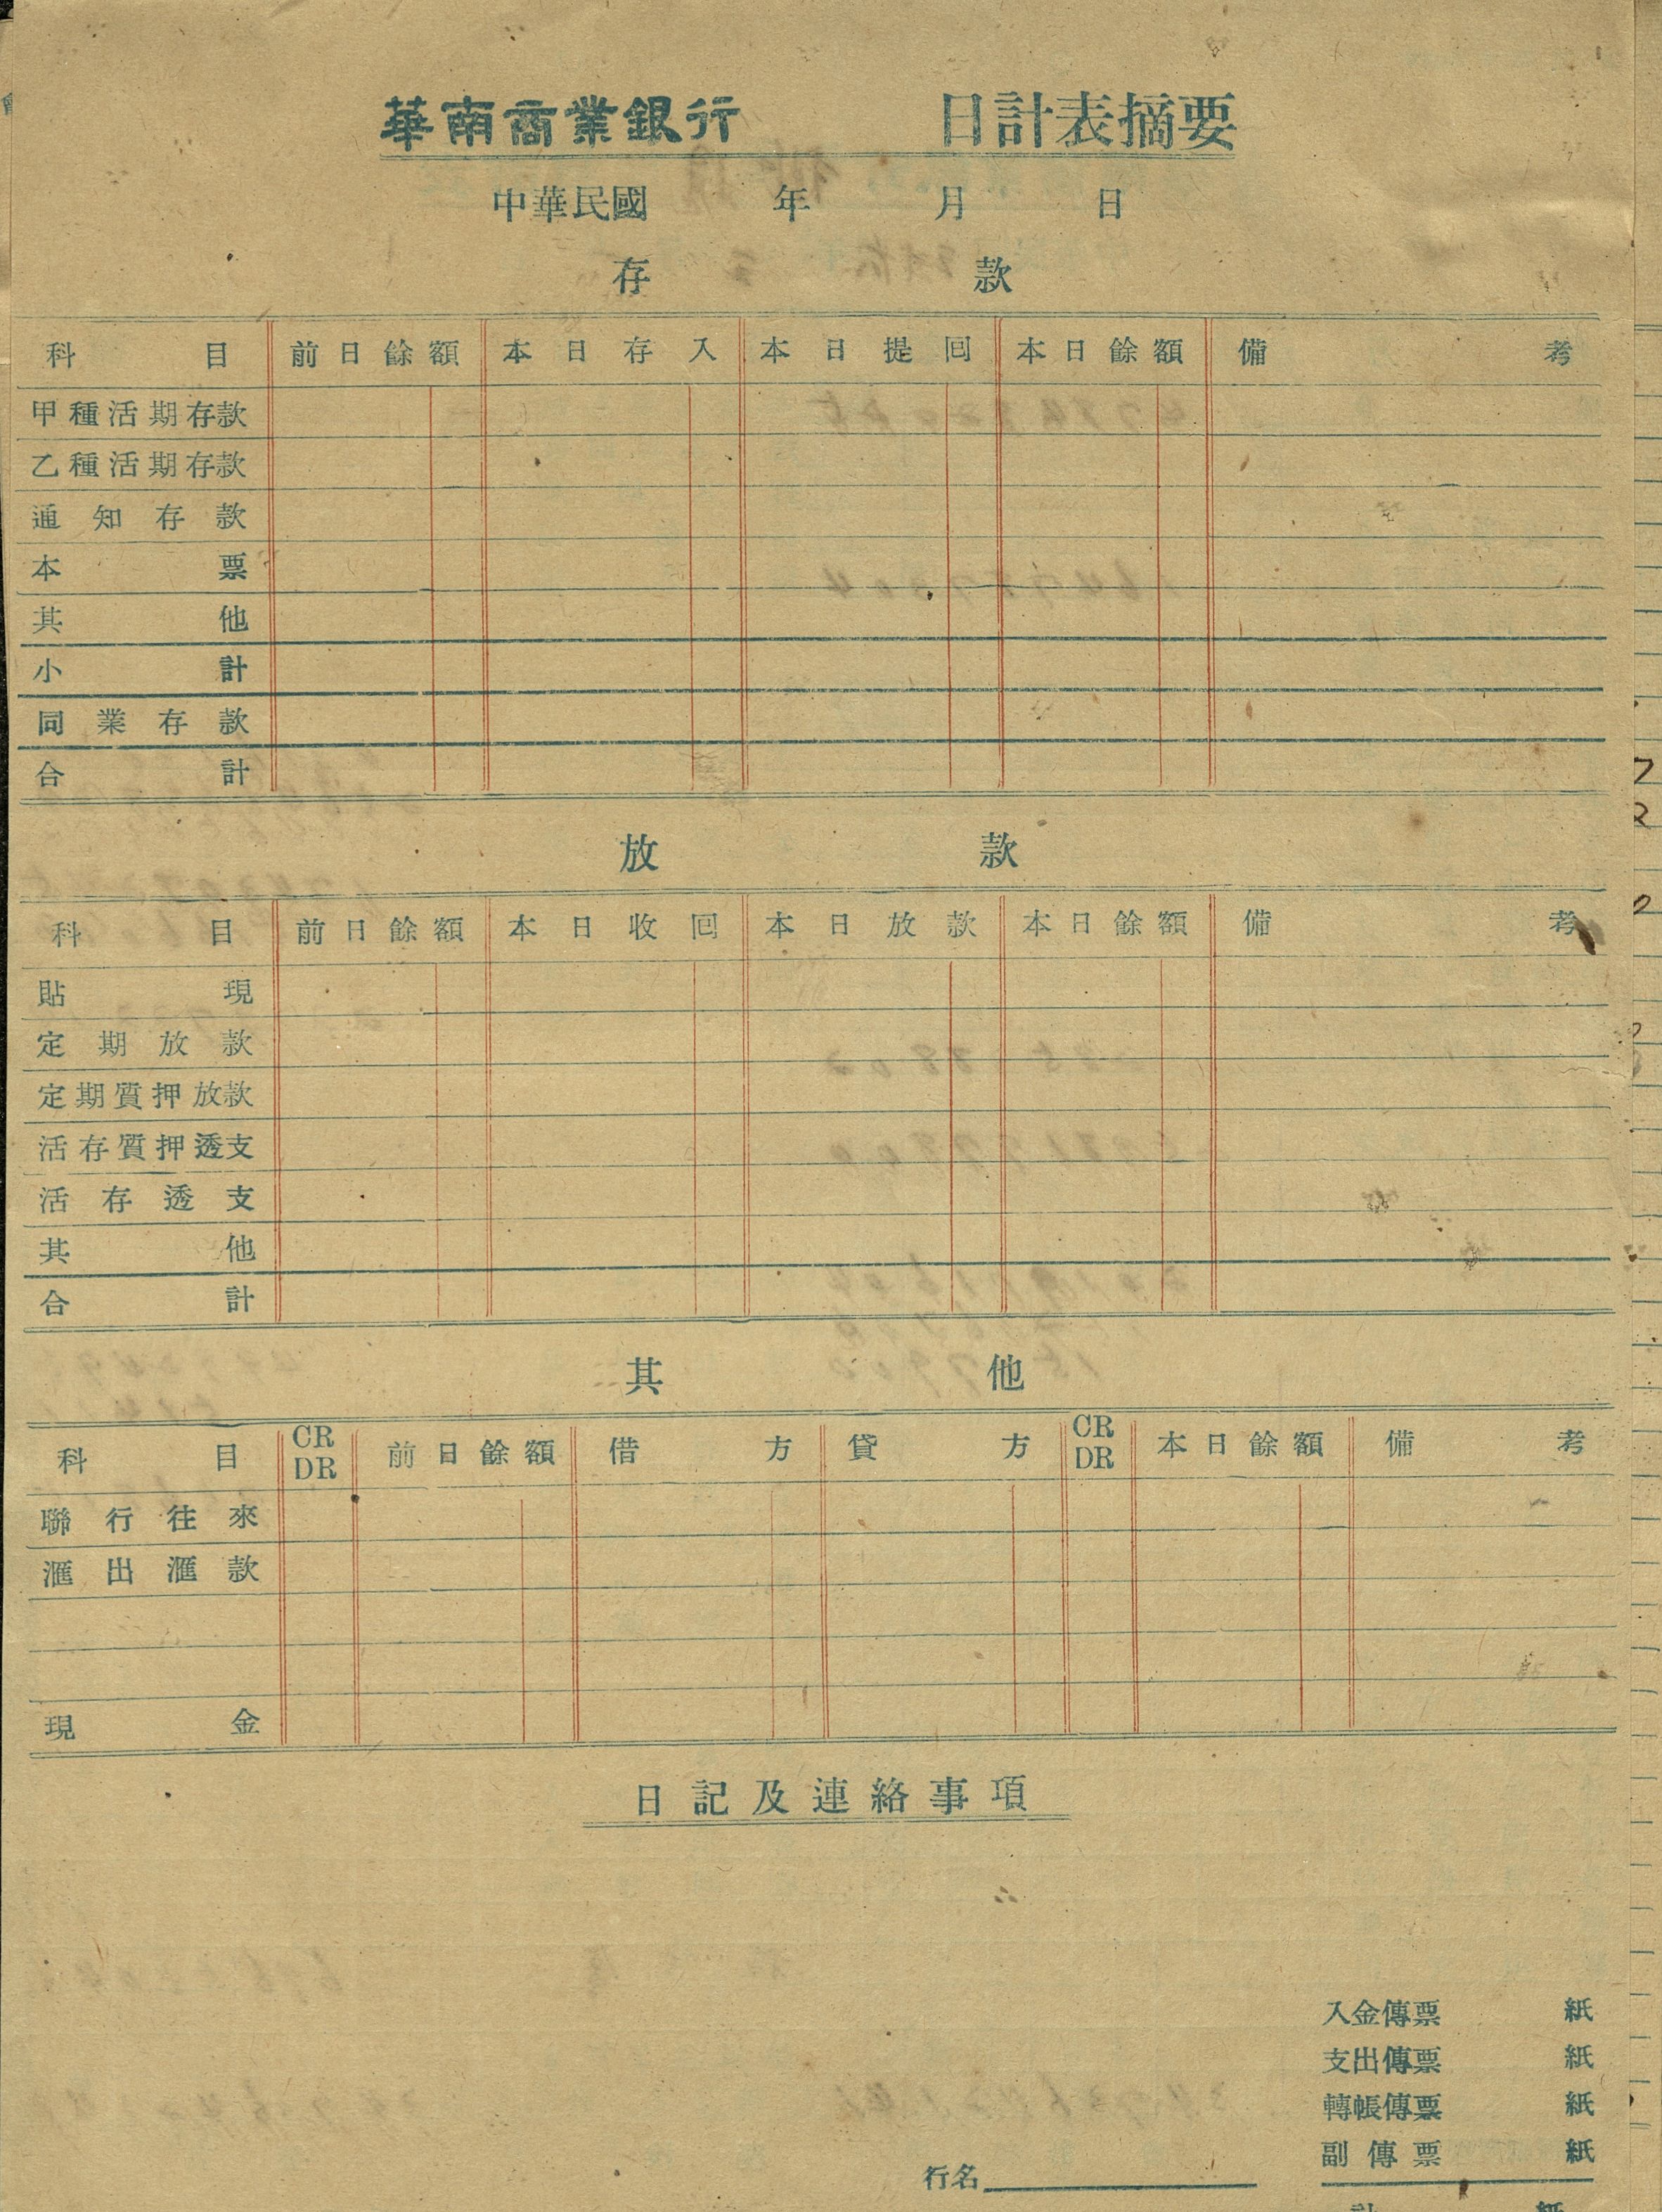 華南商業銀行 日計表摘要
中華民國 年 月 日
存 款
科 目 前日餘額 本日存入 本日提回 本日餘額 備 考
甲種活期存款
乙種活期存款
通知存款
本 票
其 他
小 計
同業存款
合 計
放 款
科 目 前日餘額 本日收回 本日放款 本日餘額 備 考
貼 現
定期放款
定期質押放款
活存質押透支
活存透支
其 他
合 計
其 他
科 目 CR DR 前日餘額 借 方 貸 方 CR DR 本日餘額 備 考
聯行往來
滙出滙款
現 金
日記及連絡事項
入金傳票 紙
支出傳票 紙
轉帳傳票 紙
副傳票 紙
行名
計 紙